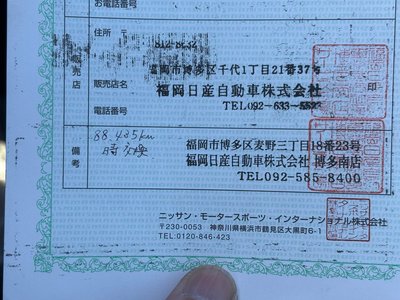 お電話番号
住所 〒 812-8632
福岡市博多区千代1丁目21番37号
販売店
販売店名 福岡日産自動車株式会社
印
電話番号 TEL092-633-5523
88,485km
時交換
備考
福岡市博多区麦野三丁目18番23号
福岡日産自動車株式会社 博多南店
TEL092-585-8400
ニッサン・モータースポーツ・インターナショナル株式会社
〒230-0053 神奈川県横浜市鶴見区大黒町6-1
TEL:0120-846-423